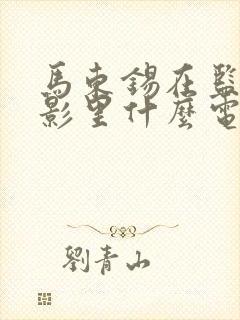 馬東錫在監
影里什麼電
劉青山